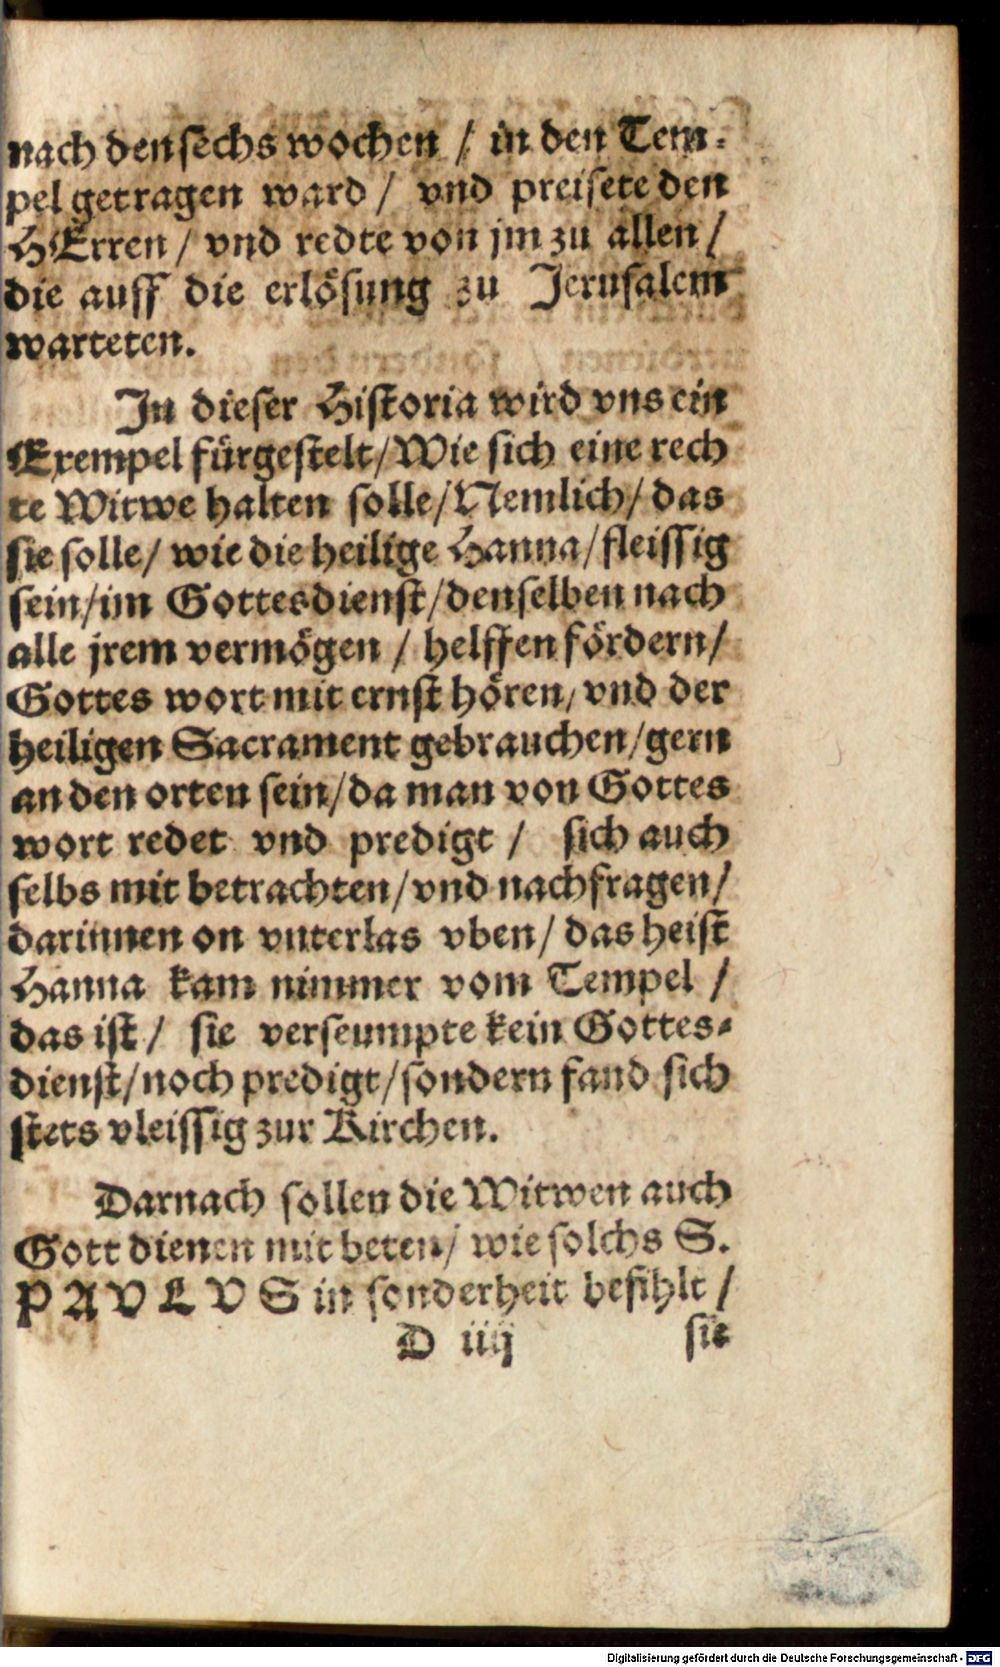 nach den sechs wochen / in den Tem-
pel getragen ward / vnd preisete den
HErren / vnd redte von jm zu allen /
die auff die erlösung zu Jerusalem
warteten.
In dieser Historia wird vns ein
Exempel fürgestelt / Wie sich eine rech
te Witwe halten solle / Nemlich / das
sie solle / wie die heilige Hanna / fleissig
sein / im Gottesdienst / denselben nach
alle jrem vermögen / helffen fördern /
Gottes wort mit ernst hören / vnd der
heiligen Sacrament gebrauchen / gern
an den orten sein / da man von Gottes
wort redet vnd predigt / sich auch
selbs mit betrachten / vnd nachfragen /
darinnen on vnterlas vben / das heist
Hanna kam nimmer vom Tempel /
das ist / sie verseumpte kein Gottes-
dienst / noch predigt / sondern fand sich
stets vleissig zur Kirchen.
Darnach sollen die Witwen auch
Gott dienen mit beten / wie solchs S.
PAVLVS in sonderheit befihlt /
D iiij sie
Digitalisierung gefördert durch die Deutsche Forschungsgemeinschaft - DFG